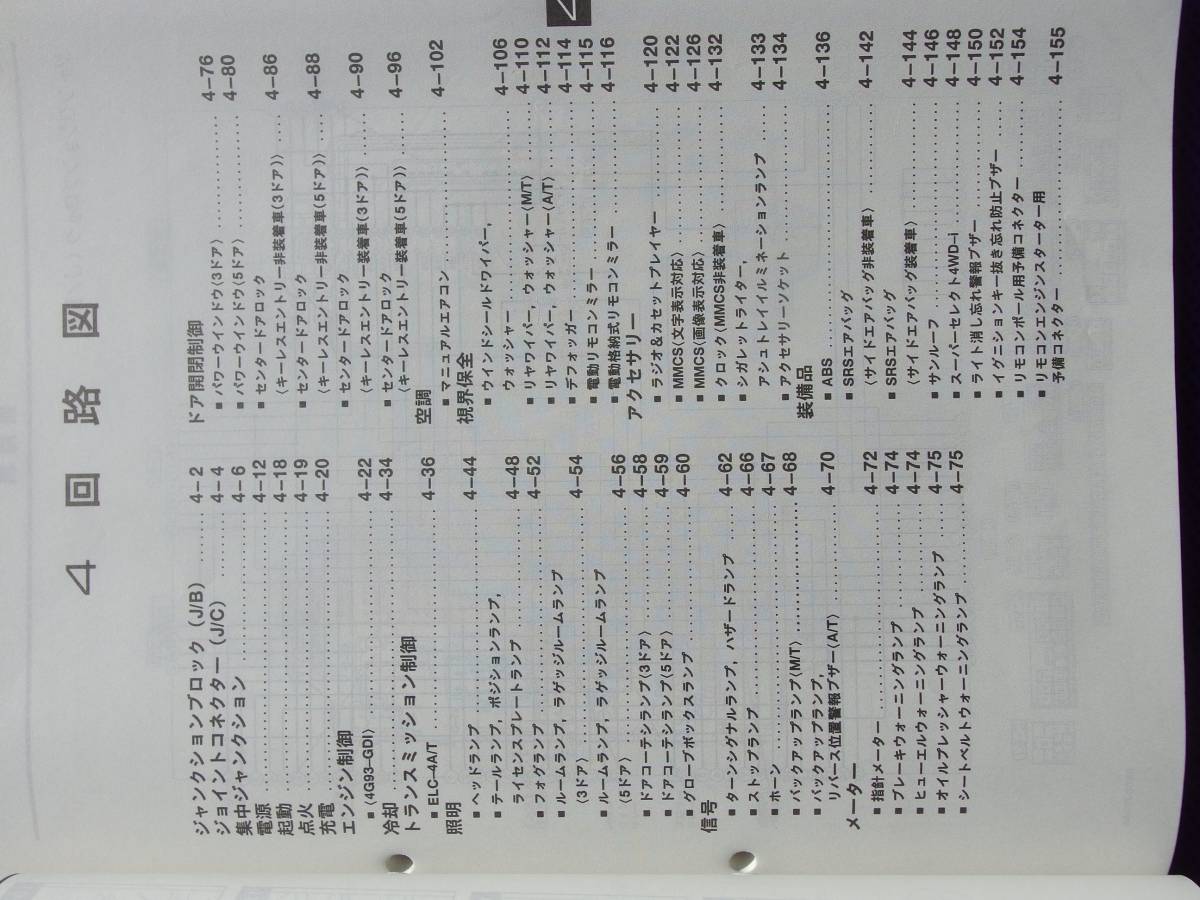 4 回路図
ジャンクションブロック (J/B) ........ 4−2
ジョイントコネクター (J/C) ........ 4−4
集中ジャンクション ........ 4−6
電源 ........ 4−12
起動 ........ 4−18
点火 ........ 4−19
充電 ........ 4−20
エンジン制御
■〈4G93−GDI〉 ........ 4−22
冷却 ........ 4−34
トランスミッション制御
■ELC−4A/T ........ 4−36
照明
■ヘッドランプ ........ 4−44
■テールランプ, ポジションランプ,
ライセンスプレートランプ ........ 4−48
■フォグランプ ........ 4−52
■ルームランプ, ラゲッジルームランプ
〈3ドア〉 ........ 4−54
■ルームランプ, ラゲッジルームランプ
〈5ドア〉 ........ 4−56
■ドアコーテシランプ〈3ドア〉 ........ 4−58
■ドアコーテシランプ〈5ドア〉 ........ 4−59
■グローブボックスランプ ........ 4−60
信号
■ターンシグナルランプ, ハザードランプ ........ 4−62
■ストップランプ ........ 4−66
■ホーン ........ 4−67
■バックアップランプ〈M/T〉 ........ 4−68
■バックアップランプ,
リバース位置警報ブザー〈A/T〉 ........ 4−70
メーター
■指針メーター ........ 4−72
■ブレーキウォーニングランプ ........ 4−74
■ヒューエルウォーニングランプ ........ 4−74
■オイルプレッシャーウォーニングランプ ........ 4−75
■シートベルトウォーニングランプ ........ 4−75
ドア開閉制御
■パワーウインドウ〈3ドア〉 ........ 4−76
■パワーウインドウ〈5ドア〉 ........ 4−80
■センタードアロック
〈キーレスエントリー非装着車(3ドア)〉 ........ 4−86
■センタードアロック
〈キーレスエントリー非装着車(5ドア)〉 ........ 4−88
■センタードアロック
〈キーレスエントリー装着車(3ドア)〉 ........ 4−90
■センタードアロック
〈キーレスエントリー装着車(5ドア)〉 ........ 4−96
空調
■マニュアルエアコン ........ 4−102
視界保全
■ウインドシールドワイパー,
ウォッシャー ........ 4−106
■リヤワイパー, ウォッシャー〈M/T〉 ........ 4−110
■リヤワイパー, ウォッシャー〈A/T〉 ........ 4−112
■デフォッガー ........ 4−114
■電動リモコンミラー ........ 4−115
■電動格納式リモコンミラー ........ 4−116
アクセサリー
■ラジオ&カセットプレイヤー ........ 4−120
■MMCS〈文字表示対応〉 ........ 4−122
■MMCS〈画像表示対応〉 ........ 4−126
■クロック〈MMCS非装着車〉 ........ 4−132
■シガレットライター,
アシュトレイイルミネーションランプ ........ 4−133
■アクセサリーソケット ........ 4−134
装備品
■ABS ........ 4−136
■SRSエアバッグ
〈サイドエアバッグ非装着車〉 ........ 4−142
■SRSエアバッグ
〈サイドエアバッグ装着車〉 ........ 4−144
■サンルーフ ........ 4−146
■スーパーセレクト4WD−i ........ 4−148
■ライト消し忘れ警報ブザー ........ 4−150
■イグニションキー抜き忘れ防止ブザー ........ 4−152
■リモコンポール用予備コネクター ........ 4−154
■リモコンエンジンスターター用
予備コネクター ........ 4−155
4